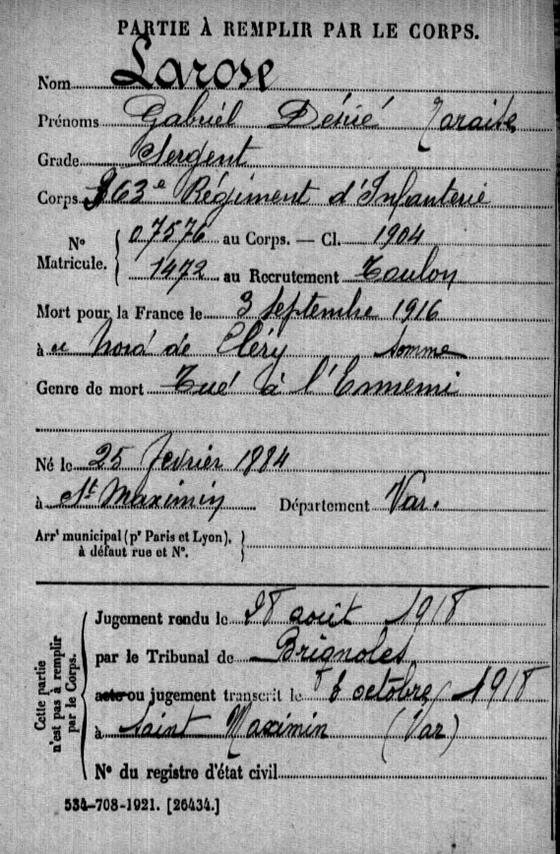 PARTIE À REMPLIR PAR LE CORPS.
Nom Larose
Prénoms Gabriel Désiré
Grade Sergent
Corps 363e Régiment d'Infanterie
N° Matricule. { 07576 au Corps. — Cl. 1904
1472 au Recrutement Toulon
Mort pour la France le 3 septembre 1916
à au Nord de Cléry Somme
Genre de mort Tué à l'Ennemi
Né le 25 février 1884
à St Maximin Département Var.
Arrt municipal (pr Paris et Lyon), à défaut rue et N°. }
Cette partie n'est pas à remplir par le Corps.
Jugement rendu le 28 août 1918
par le Tribunal de Brignoles
acte ou jugement transcrit le 8 octobre 1918
à Saint Maximin (Var)
N° du registre d'état civil
534-708-1921. [26434.]